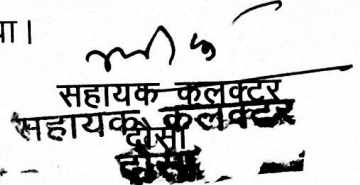 या।
सहायक कलक्टर
सहायक कलक्टर
दौसा
दौसा